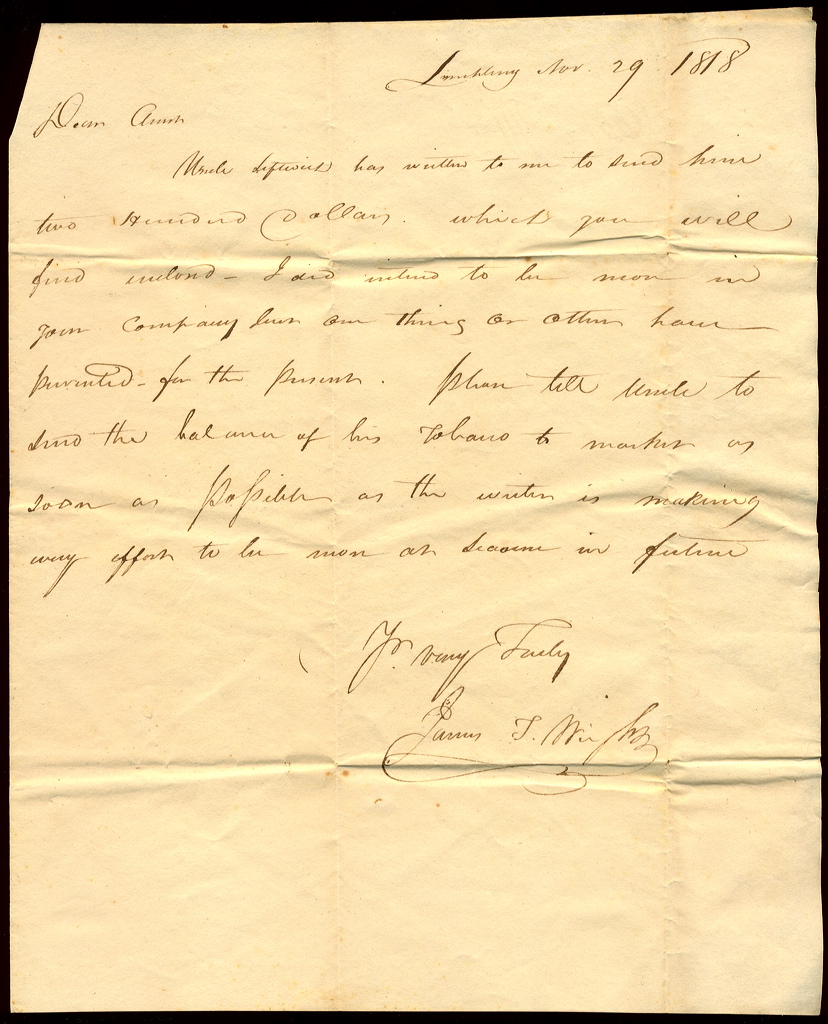 Lynchburg Nov. 29 1818
Dear Aunt
Uncle Leftwich has written to me to send him
two Hundred Dollars. which you will
find inclosd - I did intend to be now in
your Company but one thing or other have
prevented - for the present. Please tell Uncle to
send the balance of his Tobacco to market as
soon as possible as the writer is making
every effort to be now at in future
Yr. very Truly
James T. Wright